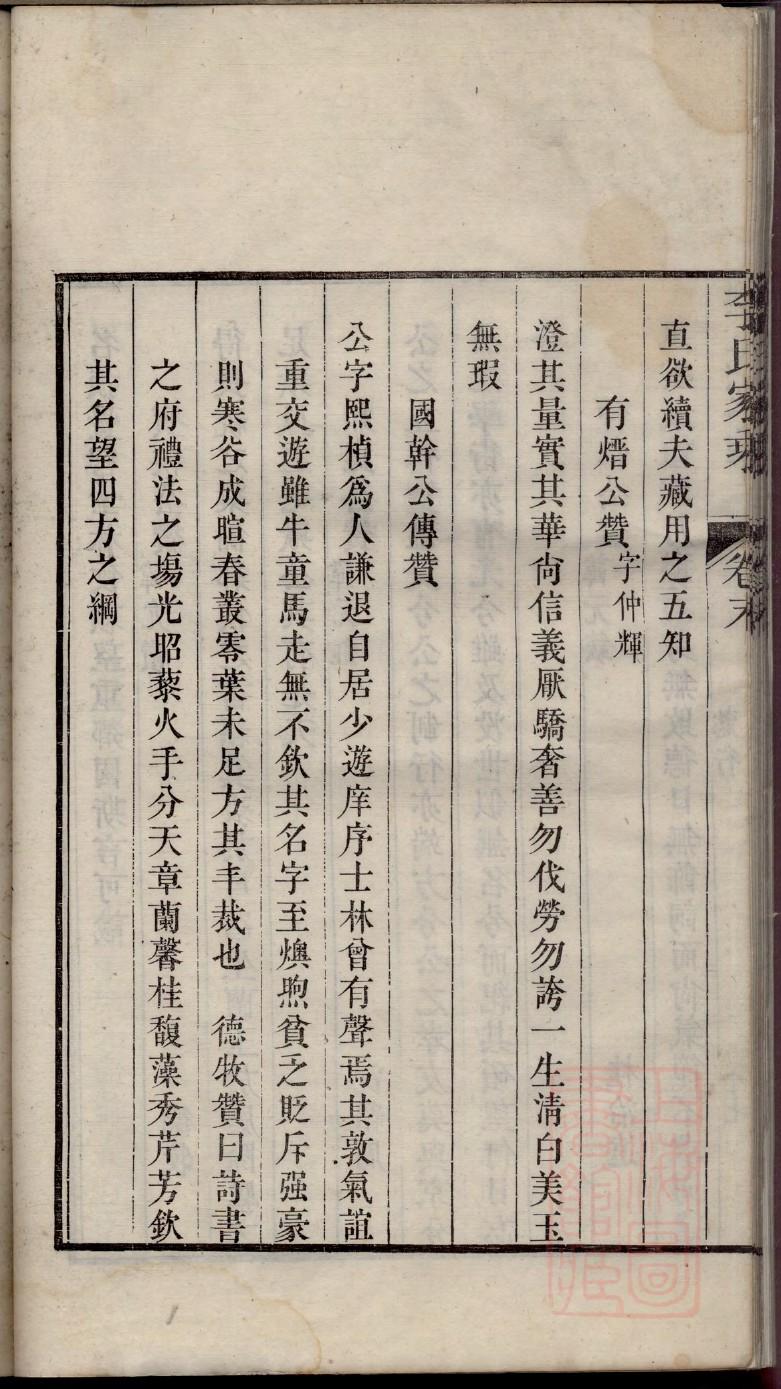 李氏家乘 卷末
直欲續夫藏用之五知
有熸公贊字仲輝
澄其量實其華尙信義厭驕奢善勿伐勞勿誇一生淸白美玉
無瑕
國幹公傳贊
公字熙楨爲人謙退自居少遊庠序士林曾有聲焉其敦氣誼
重交遊雖牛童馬走無不欽其名字至燠煦貧乏貶斥强豪
則寒谷成暄春叢零葉未足方其丰裁也　德牧贊曰詩書
之府禮法之塲光昭藜火手分天章蘭馨桂馥藻秀芹芳欽
其名望四方之綱